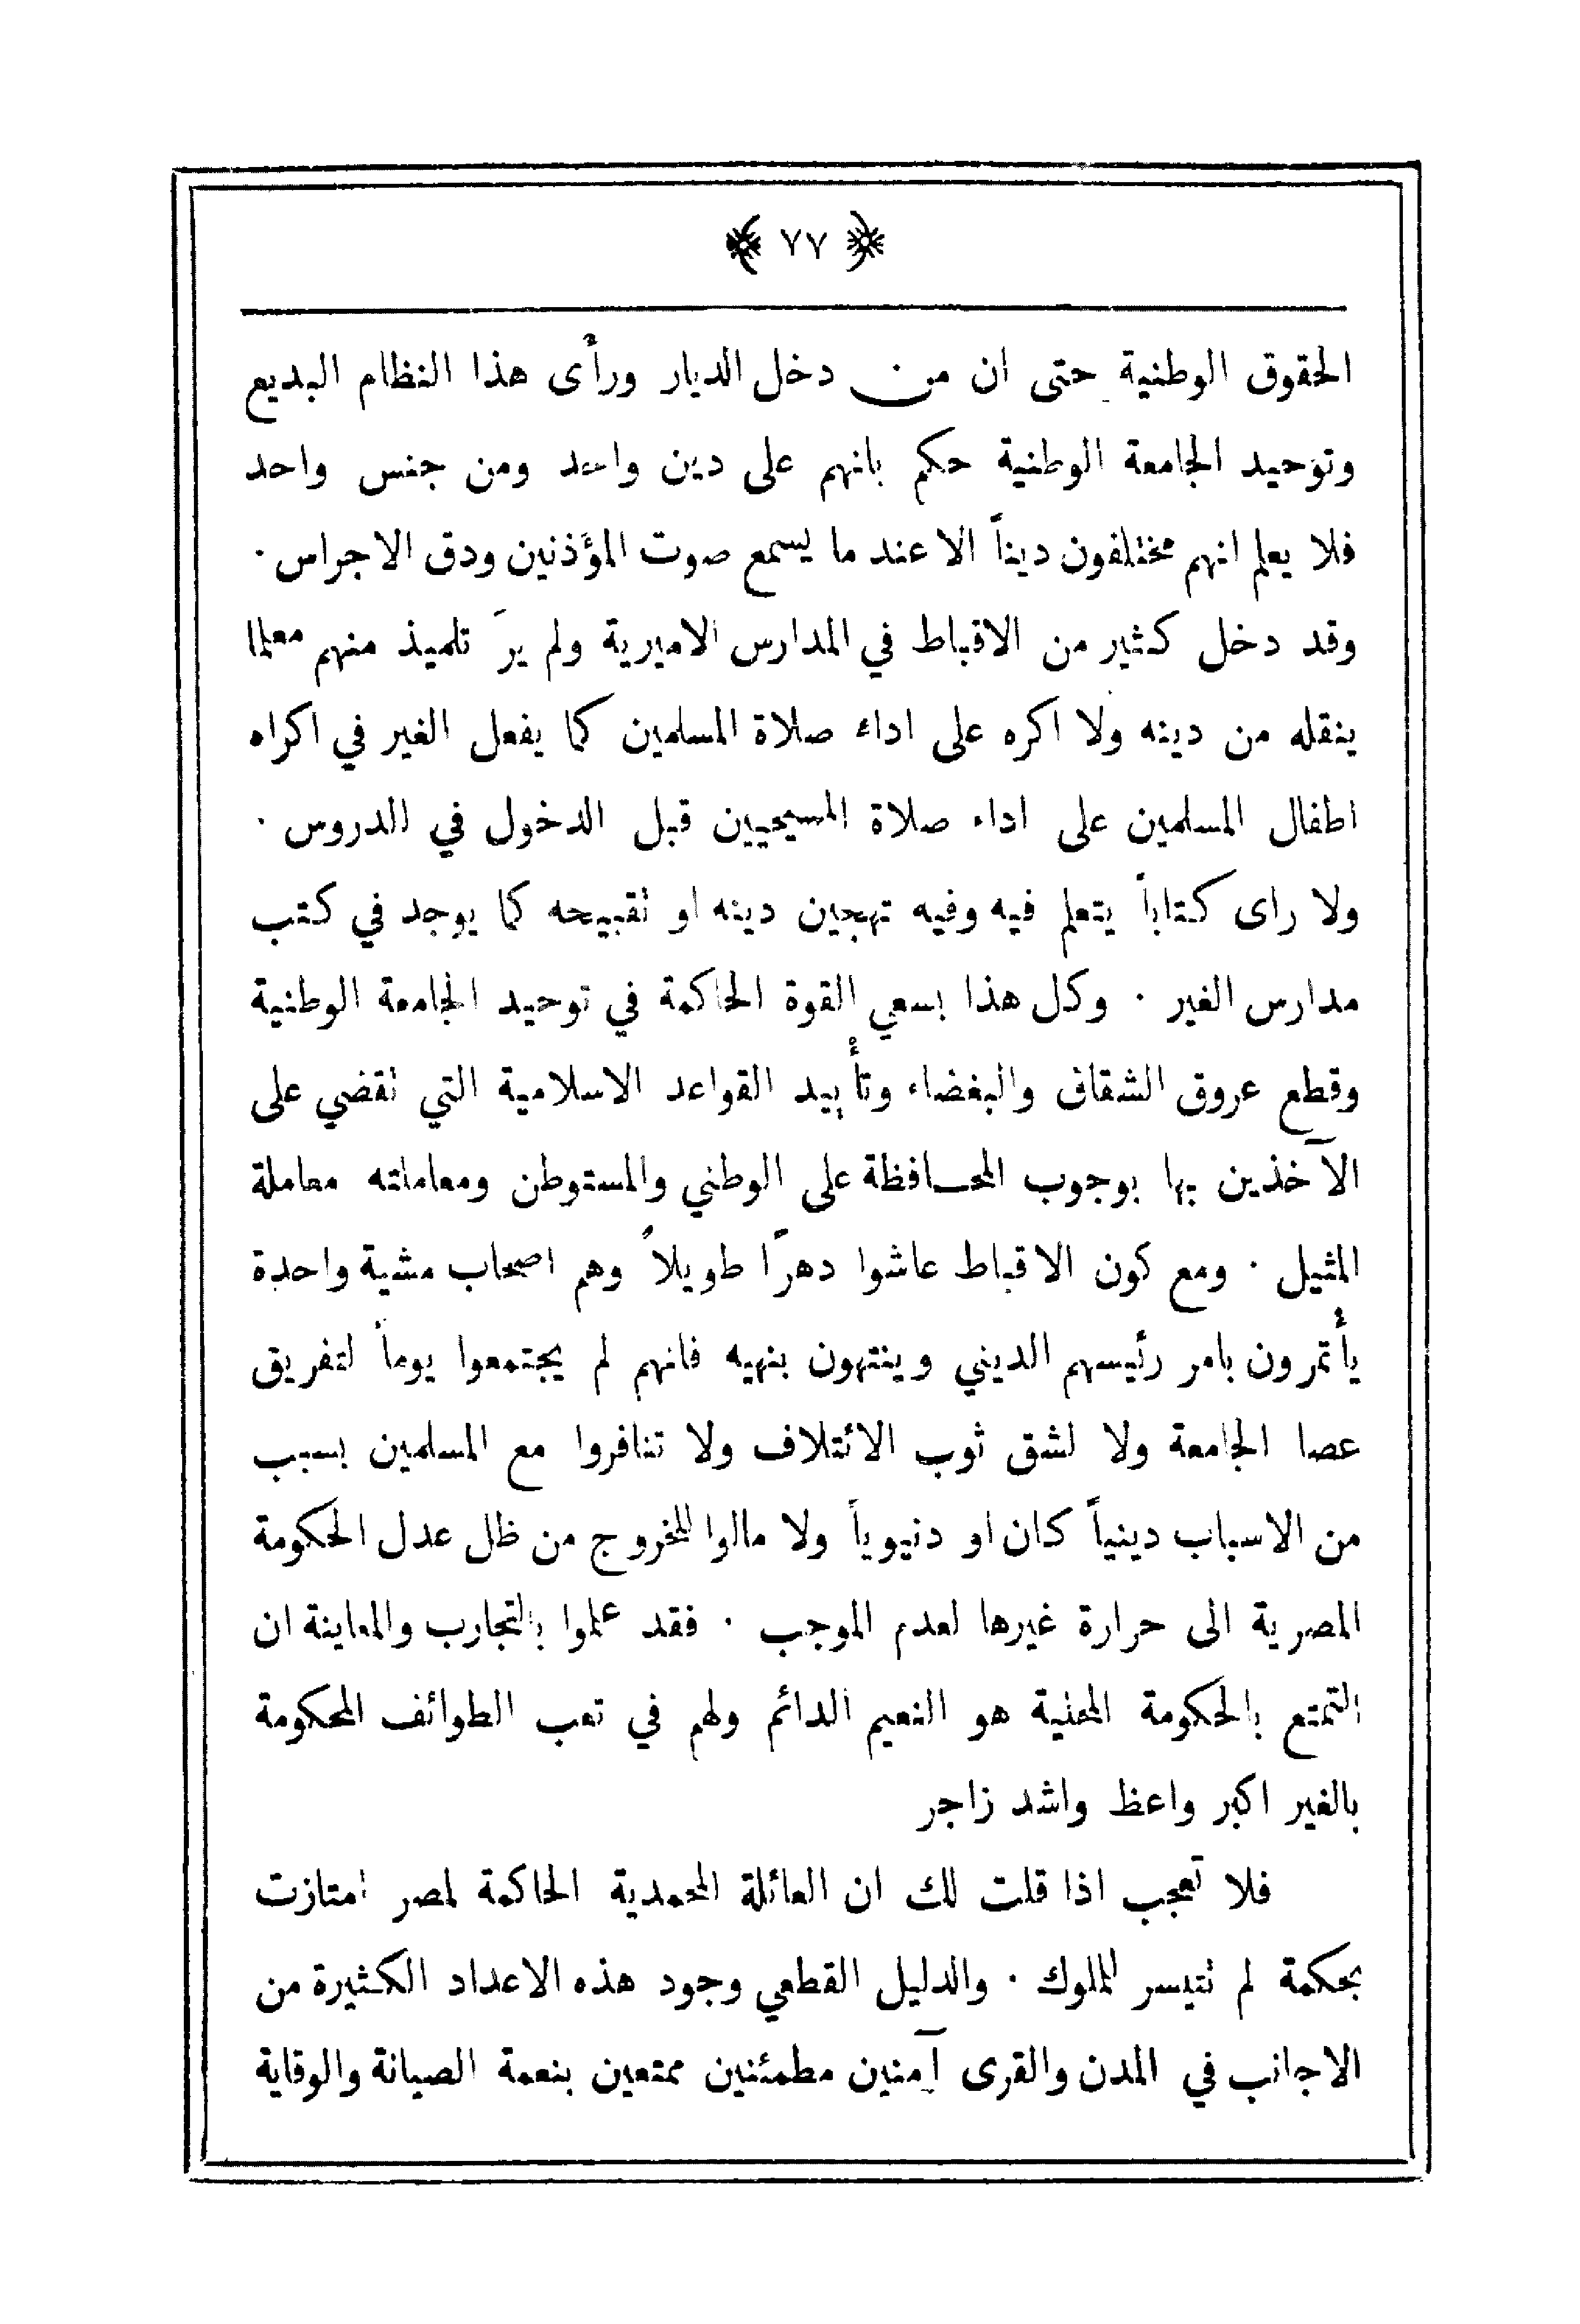 ﴿ ٧٧ ﴾
الحقوق الوطنية حتى ان من دخل الديار ورأى هذا النظام البديع
وتوحيد الجامعة الوطنية حكم بانهم على دين واحد ومن جنس واحد
فلا يعلم انهم مختلفون ديناً الا عند ما يسمع صوت المؤذنين ودق الاجراس .
وقد دخل كثير من الاقباط في المدارس الاميرية ولم يرَ تلميذ منهم معلما
ينقله من دينه ولا اكره على اداء صلاة المسلمين كما يفعل الغير في اكراه
اطفال المسلمين على اداء صلاة المسيحيين قبل الدخول في الدروس .
ولا راى كتاباً يتعلم فيه وفيه تهجين دينه او تقبيحه كما يوجد في كتب
مدارس الغير . وكل هذا بسعي القوة الحاكمة في توحيد الجامعة الوطنية
وقطع عروق الشقاق والبغضاء وتأييد القواعد الاسلامية التي تقضي على
الآخذين بها بوجوب المحافظة على الوطني والمستوطن ومعاملته معاملة
المثيل . ومع كون الاقباط عاشوا دهرًا طويلاً وهم اصحاب مشية واحدة
يأتمرون بامر رئيسهم الديني وينتهون بنهيه فانهم لم يجتمعوا يوماً لتفريق
عصا الجامعة ولا لشق ثوب الائتلاف ولا تنافروا مع المسلمين بسبب
من الاسباب دينياً كان او دنيوياً ولا مالوا للخروج من ظل عدل الحكومة
المصرية الى حرارة غيرها لعدم الموجب . فقد علموا بالتجارب والمعاينة ان
التمتع بالحكومة المحلية هو النعيم الدائم ولهم في تعب الطوائف المحكومة
بالغير اكبر واعظ واشد زاجر
فلا تعجب اذا قلت لك ان العائلة المحمدية الحاكمة لمصر امتازت
بحكمة لم تتيسر لملوك . والدليل القطعي وجود هذه الاعداد الكثيرة من
الاجانب في المدن والقرى آمنين مطمئنين ممتعين بنعمة الصيانة والوقاية